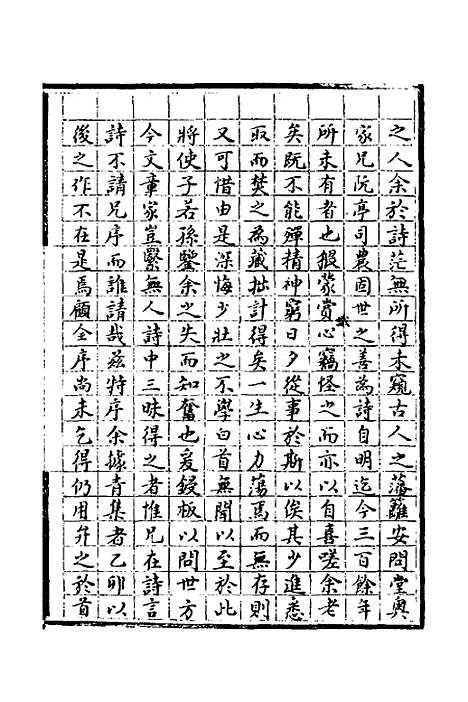 之人余於詩茫無所得未窺古人之藩籬安問堂奧
家兄阮亭司農固世之善為詩自明迄今三百餘年
所未有者也猥蒙賞心竊怪之而亦以自喜嗟余老
矣既不能殫精神窮日夕從事於斯以俟其少進悉
取而焚之為藏拙計得矣一生心力蕩焉而無存則
又可惜由是深悔少壯之不學白首無聞以至於此
將使子若孫鑒余之失而知奮也爰鋟板以問世方
今文章家豈繄無人詩中三昧得之者惟兄在詩言
詩不請兄序而誰請哉茲特序余據青集者乙卯以
後之作不在是焉顧全序尚未乞得仍用弁之於首